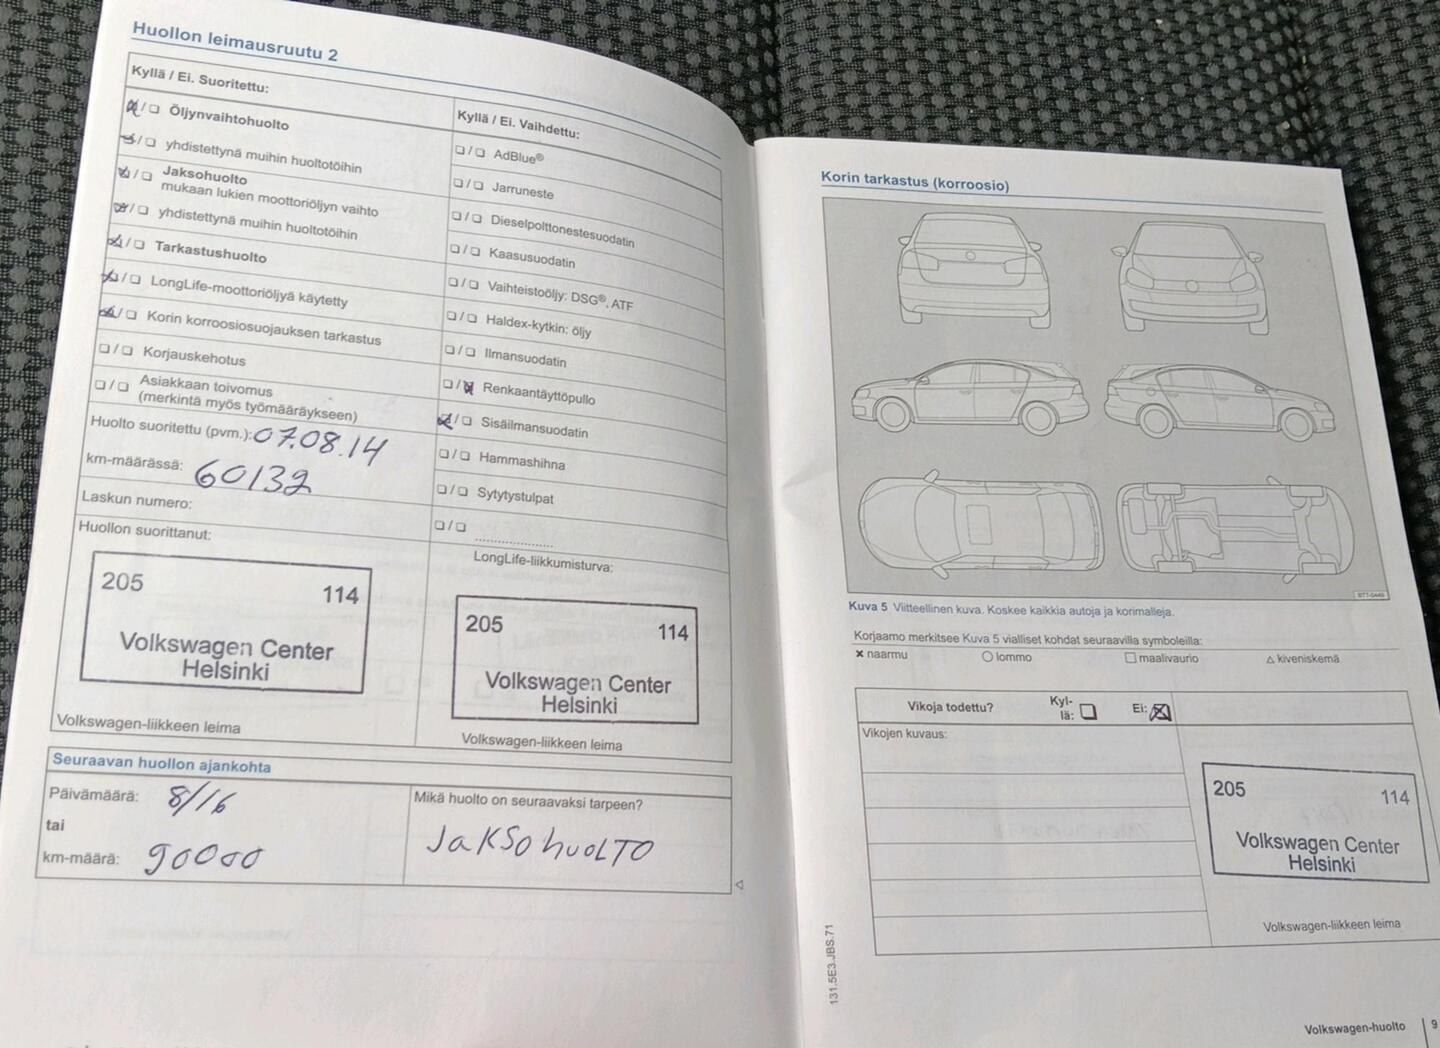 Huollon leimausruutu 2
Kyllä / Ei. Suoritettu:
/ Öljynvaihtohuolto
/ yhdistettynä muihin huoltotöihin
/ Jaksohuolto
mukaan lukien moottoriöljyn vaihto
/ yhdistettynä muihin huoltotöihin
/ Tarkastushuolto
/ LongLife-moottoriöljyä käytetty
/ Korin korroosiosuojauksen tarkastus
/ Korjauskehotus
/ Asiakkaan toivomus
(merkintä myös työmääräykseen)
Huolto suoritettu (pvm.): 07.08.14
km-määrässä: 60132
Laskun numero:
Huollon suorittanut:
205 114
Volkswagen Center
Helsinki
Volkswagen-liikkeen leima
Kyllä / Ei. Vaihdettu:
/ AdBlue®
/ Jarruneste
/ Dieselpolttonestesuodatin
/ Kaasusuodatin
/ Vaihteistoöljy: DSG®, ATF
/ Haldex-kytkin: öljy
/ Ilmansuodatin
/ Renkaantäyttöpullo
/ Sisäilmansuodatin
/ Hammashihna
/ Sytytystulpat
/ ....................
LongLife-liikkumisturva:
205 114
Volkswagen Center
Helsinki
Volkswagen-liikkeen leima
Seuraavan huollon ajankohta
Päivämäärä: 8/16
tai
km-määrä: 90000
Mikä huolto on seuraavaksi tarpeen?
JaKSohuoLTO
Korin tarkastus (korroosio)
BTT-0449
Kuva 5 Viitteellinen kuva. Koskee kaikkia autoja ja korimalleja.
Korjaamo merkitsee Kuva 5 vialliset kohdat seuraavilla symboleilla:
× naarmu ○ lommo □ maalivaurio △ kiveniskemä
Vikoja todettu? Kyl-
lä: Ei:
Vikojen kuvaus:
205 114
Volkswagen Center
Helsinki
Volkswagen-liikkeen leima
131.5E3.JBS.71
Volkswagen-huolto 9